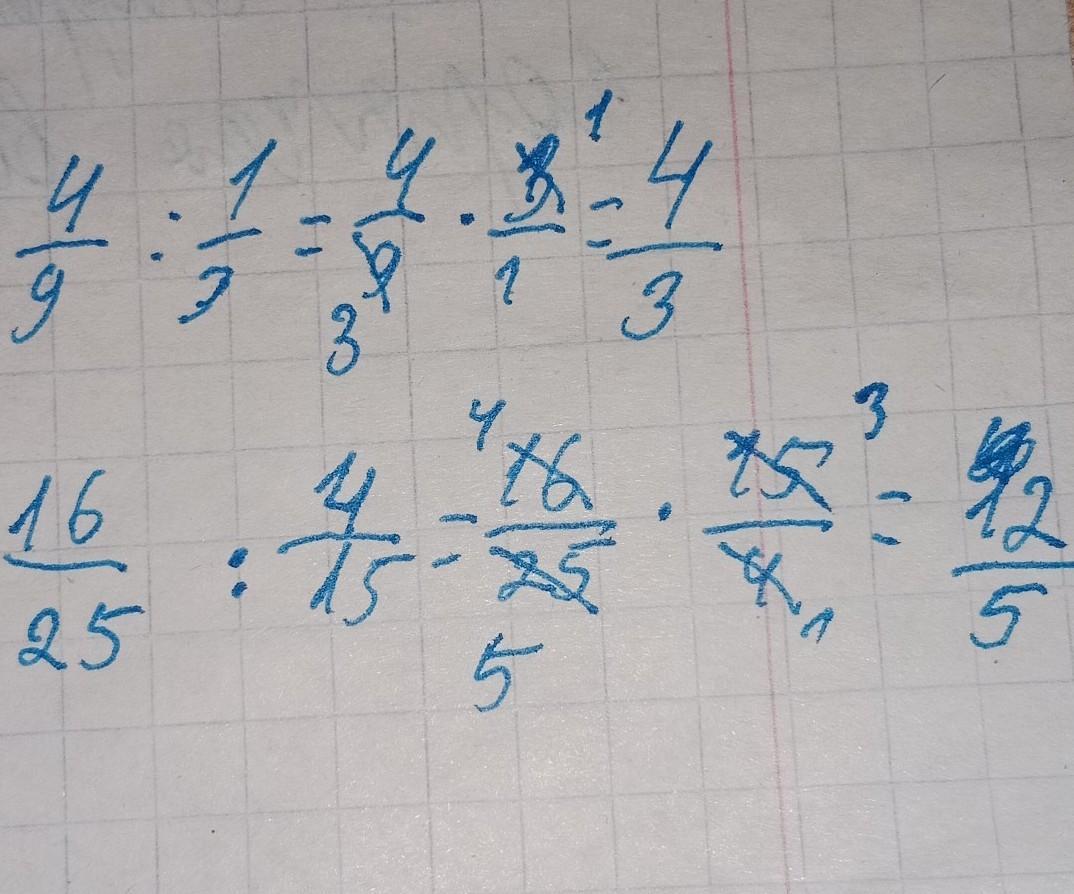 4/9 : 1/3 = 4/9 3 · 3/1 1 = 4/3
16/25 : 4/15 = 4 16/25 5 · 15/4 3 1 = 12/5